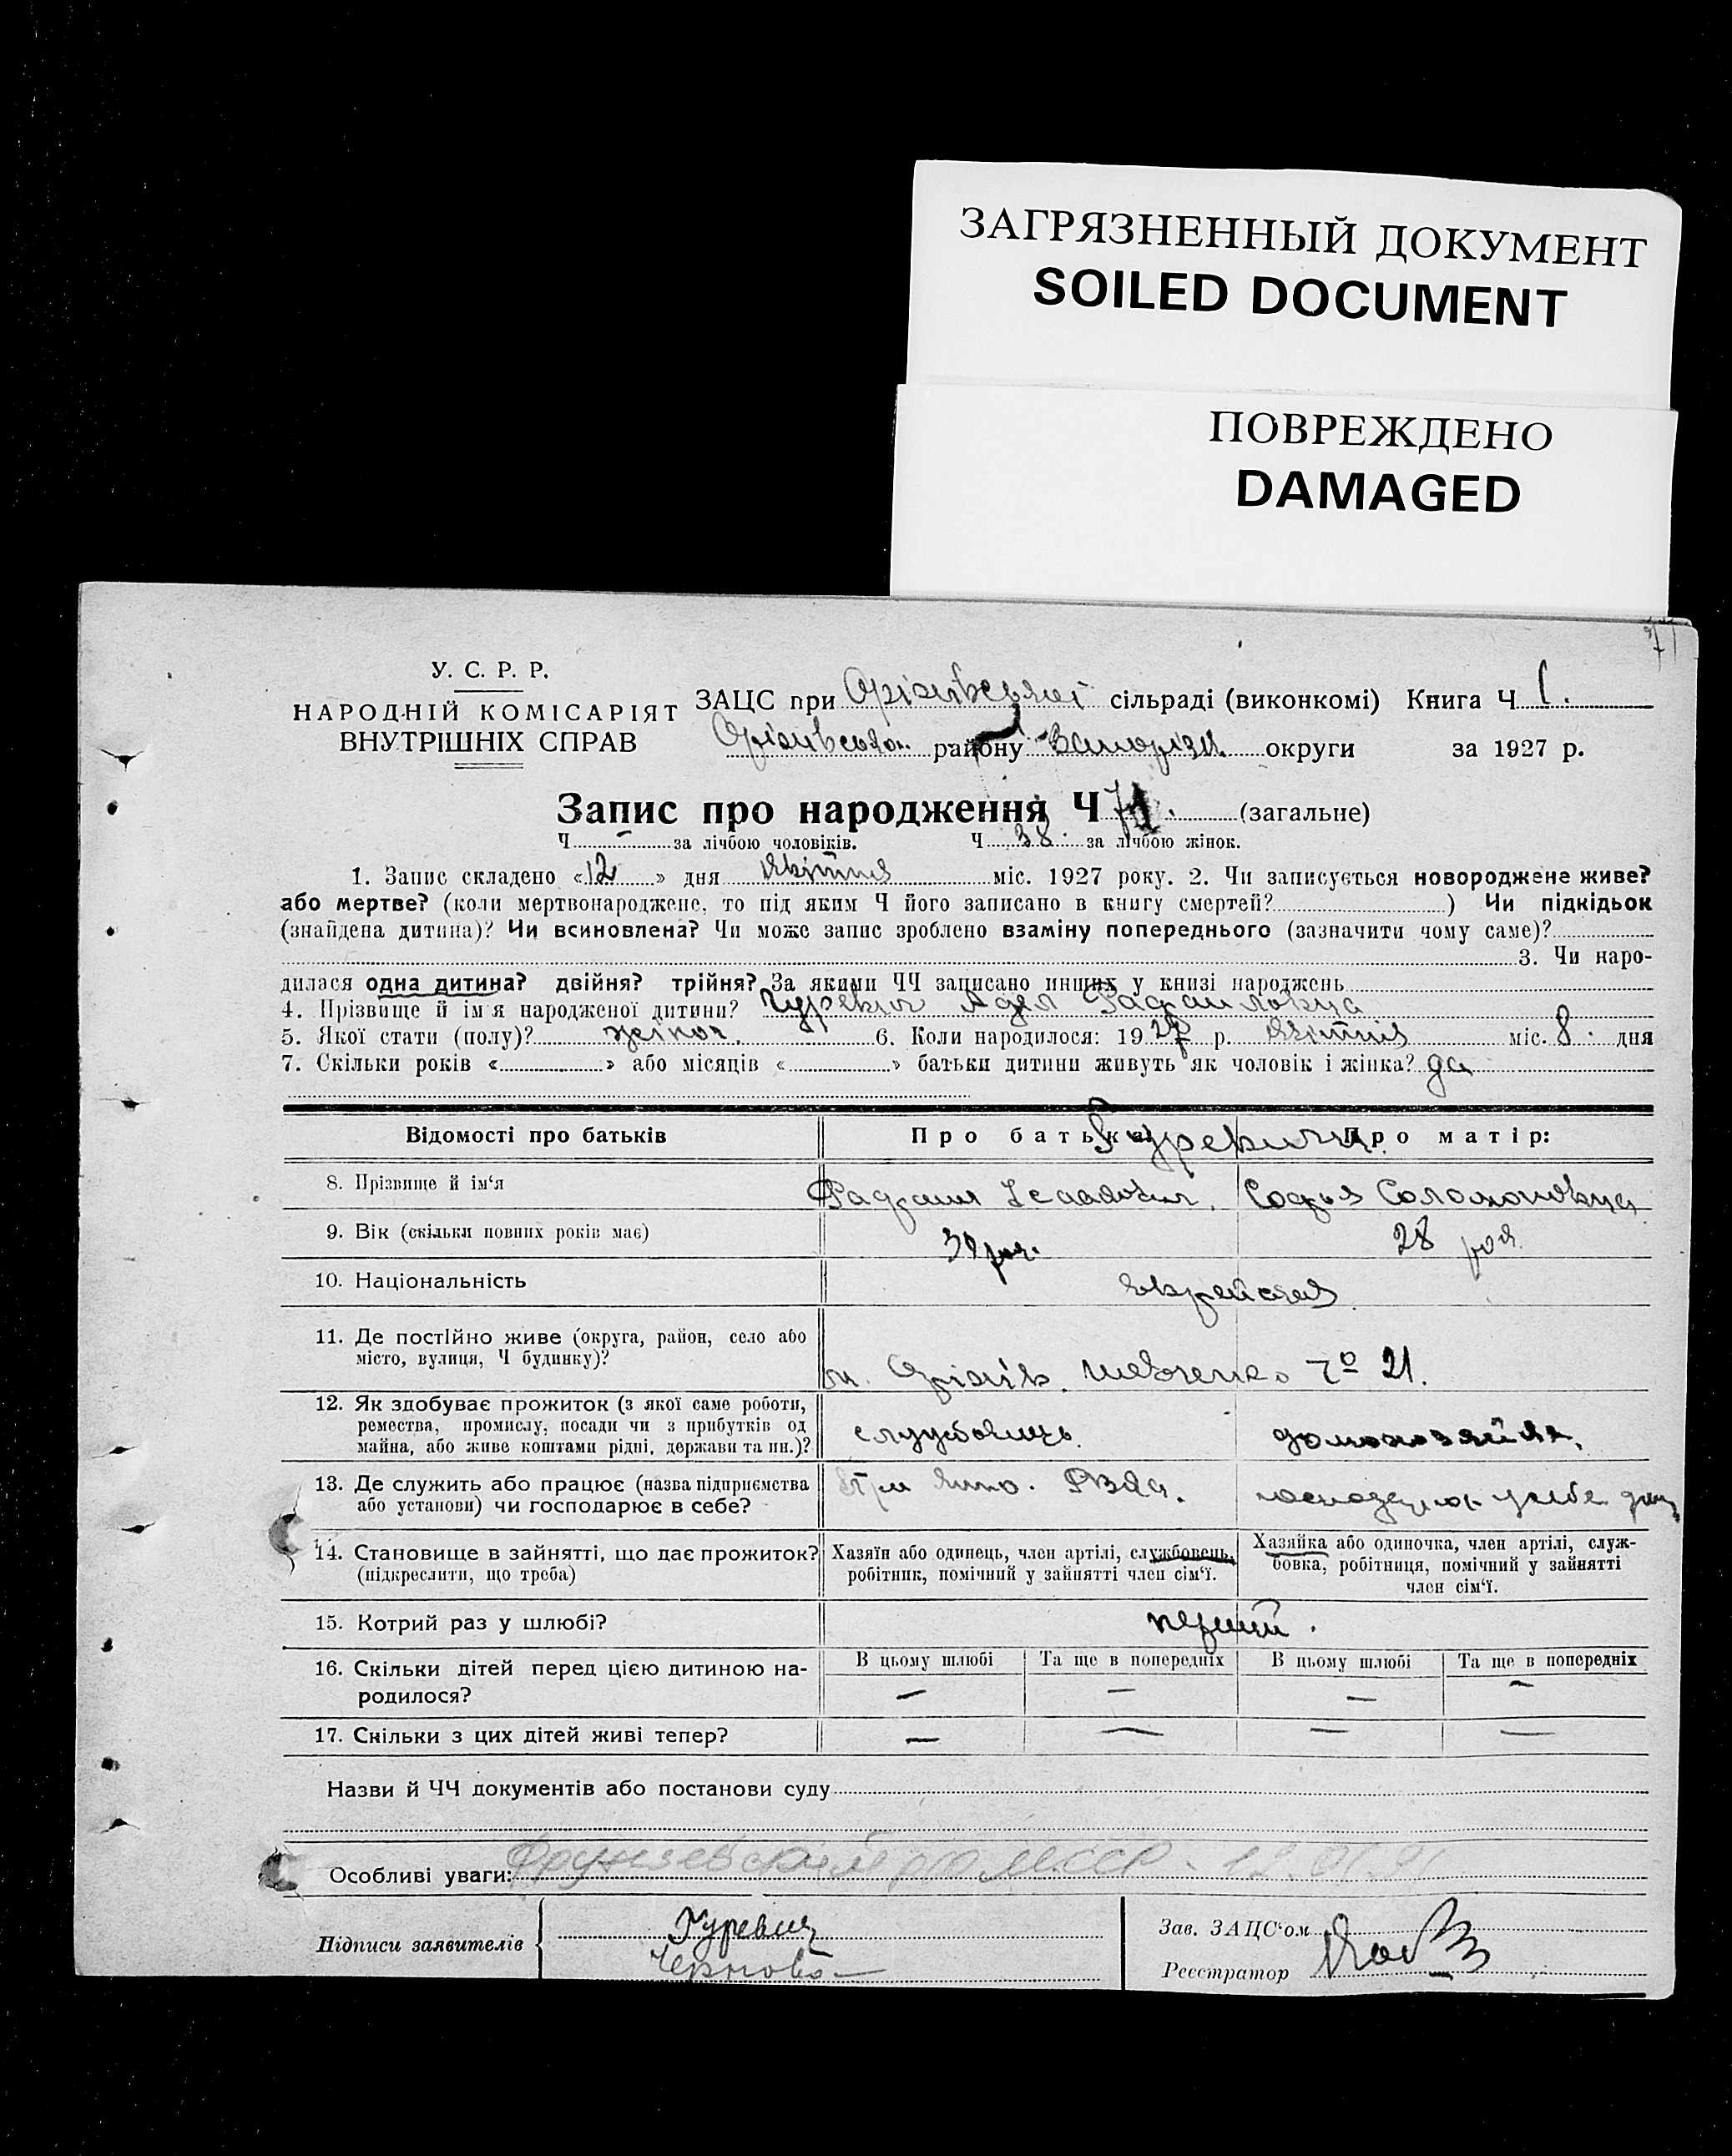 ЗАГРЯЗНЕННЫЙ ДОКУМЕНТ
SOILED DOCUMENT
ПОВРЕЖДЕНО
DAMAGED
У. С. Р. Р.
НАРОДНІЙ КОМІСАРІЯТ
ВНУТРІШНІХ СПРАВ
ЗАЦС при Оріхівській сільраді (виконкомі) Книга Ч 1.
району округи за 1927 р.
Запис про народження Ч 71. (загальне)
Ч — за лічбою чоловіків. Ч 38. за лічбою жінок.
1. Запис складено «12» дня Квітня міс. 1927 року. 2. Чи записується новороджене живе?
або мертве? (коли мертвонароджене, то під яким Ч його записано в книгу смертей? ) Чи підкідьок
(знайдена дитина)? Чи всиновлена? Чи може запис зроблено взаміну попереднього (зазначити чому саме)?
3. Чи наро-
дилася одна дитина? двійня? трійня? За якими ЧЧ записано инших у книзі народжень
4. Прізвище й ім'я народженої дитини? Гуревич Рафаиловна
5. Якої стати (полу)? жіноч. 6. Коли народилося: 1927 р. Квітня міс. 8. дня
7. Скільки років « » або місяців « » батьки дитини живуть як чоловік і жінка? да
Відомості про батьків Про батька: Про матір:
Гуревичи
8. Прізвище й ім'я Рафаил Ісаакович. Софья Соломоновна
9. Вік (скільки повних років має) 30 рок. 28 рок.
10. Національність
11. Де постійно живе (округа, район, село або
місто, вулиця, Ч будинку)?
м. Оріхів. Шевченко 21.
12. Як здобуває прожиток (з якої саме роботи,
ремества, промислу, посади чи з прибутків од
майна, або живе коштами рідні, держави та ин.)?
службовець. домохозяйка.
13. Де служить або працює (назва підприємства
або установи) чи господарює в себе?
14. Становище в зайнятті, що дає прожиток?
(підкреслити, що треба)
Хазяїн або одинець, член артілі, службовець,
робітник, помічний у зайнятті член сім'ї.
Хазяйка або одиночка, член артілі, служ-
бовка, робітниця, помічний у зайнятті
член сім'ї.
15. Котрий раз у шлюбі? перший.
16. Скільки дітей перед цією дитиною на-
родилося?
В цьому шлюбі Та ще в попередніх В цьому шлюбі Та ще в попередніх
— — — —
17. Скільки з цих дітей живі тепер? — — — —
Назви й ЧЧ документів або постанови суду
Особливі уваги: Фрунзевский
Підписи заявителів
Гуревич
Зав. ЗАЦС'ом
Реєстратор